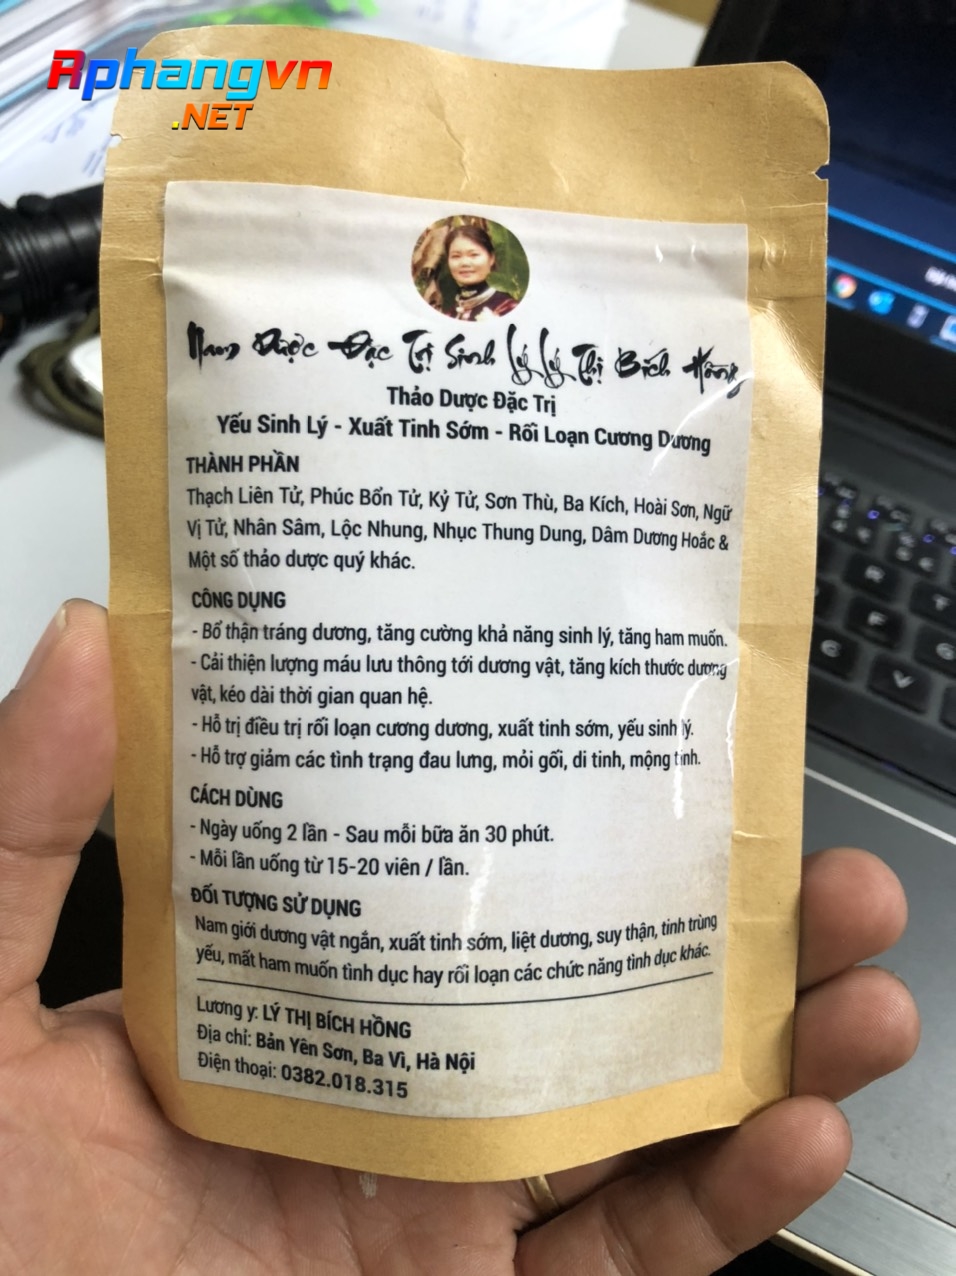 Rphangvn
.NET
Nam Dược Đặc Trị Sinh Lý Lý Thị Bích Hồng
Thảo Dược Đặc Trị
Yếu Sinh Lý - Xuất Tinh Sớm - Rối Loạn Cương Dương
THÀNH PHẦN
Thạch Liên Tử, Phúc Bổn Tử, Kỷ Tử, Sơn Thù, Ba Kích, Hoài Sơn, Ngữ
Vị Tử, Nhân Sâm, Lộc Nhung, Nhục Thung Dung, Dâm Dương Hoắc &
Một số thảo dược quý khác.
CÔNG DỤNG
- Bổ thận tráng dương, tăng cường khả năng sinh lý, tăng ham muốn.
- Cải thiện lượng máu lưu thông tới dương vật, tăng kích thước dương
vật, kéo dài thời gian quan hệ.
- Hỗ trị điều trị rối loạn cương dương, xuất tinh sớm, yếu sinh lý.
- Hỗ trợ giảm các tình trạng đau lưng, mỏi gối, di tinh, mộng tinh.
CÁCH DÙNG
- Ngày uống 2 lần - Sau mỗi bữa ăn 30 phút.
- Mỗi lần uống từ 15-20 viên / lần.
ĐỐI TƯỢNG SỬ DỤNG
Nam giới dương vật ngắn, xuất tinh sớm, liệt dương, suy thận, tinh trùng
yếu, mất ham muốn tình dục hay rối loạn các chức năng tình dục khác.
Lương y: LÝ THỊ BÍCH HỒNG
Địa chỉ: Bản Yên Sơn, Ba Vì, Hà Nội
Điện thoại: 0382.018.315
R
C
V